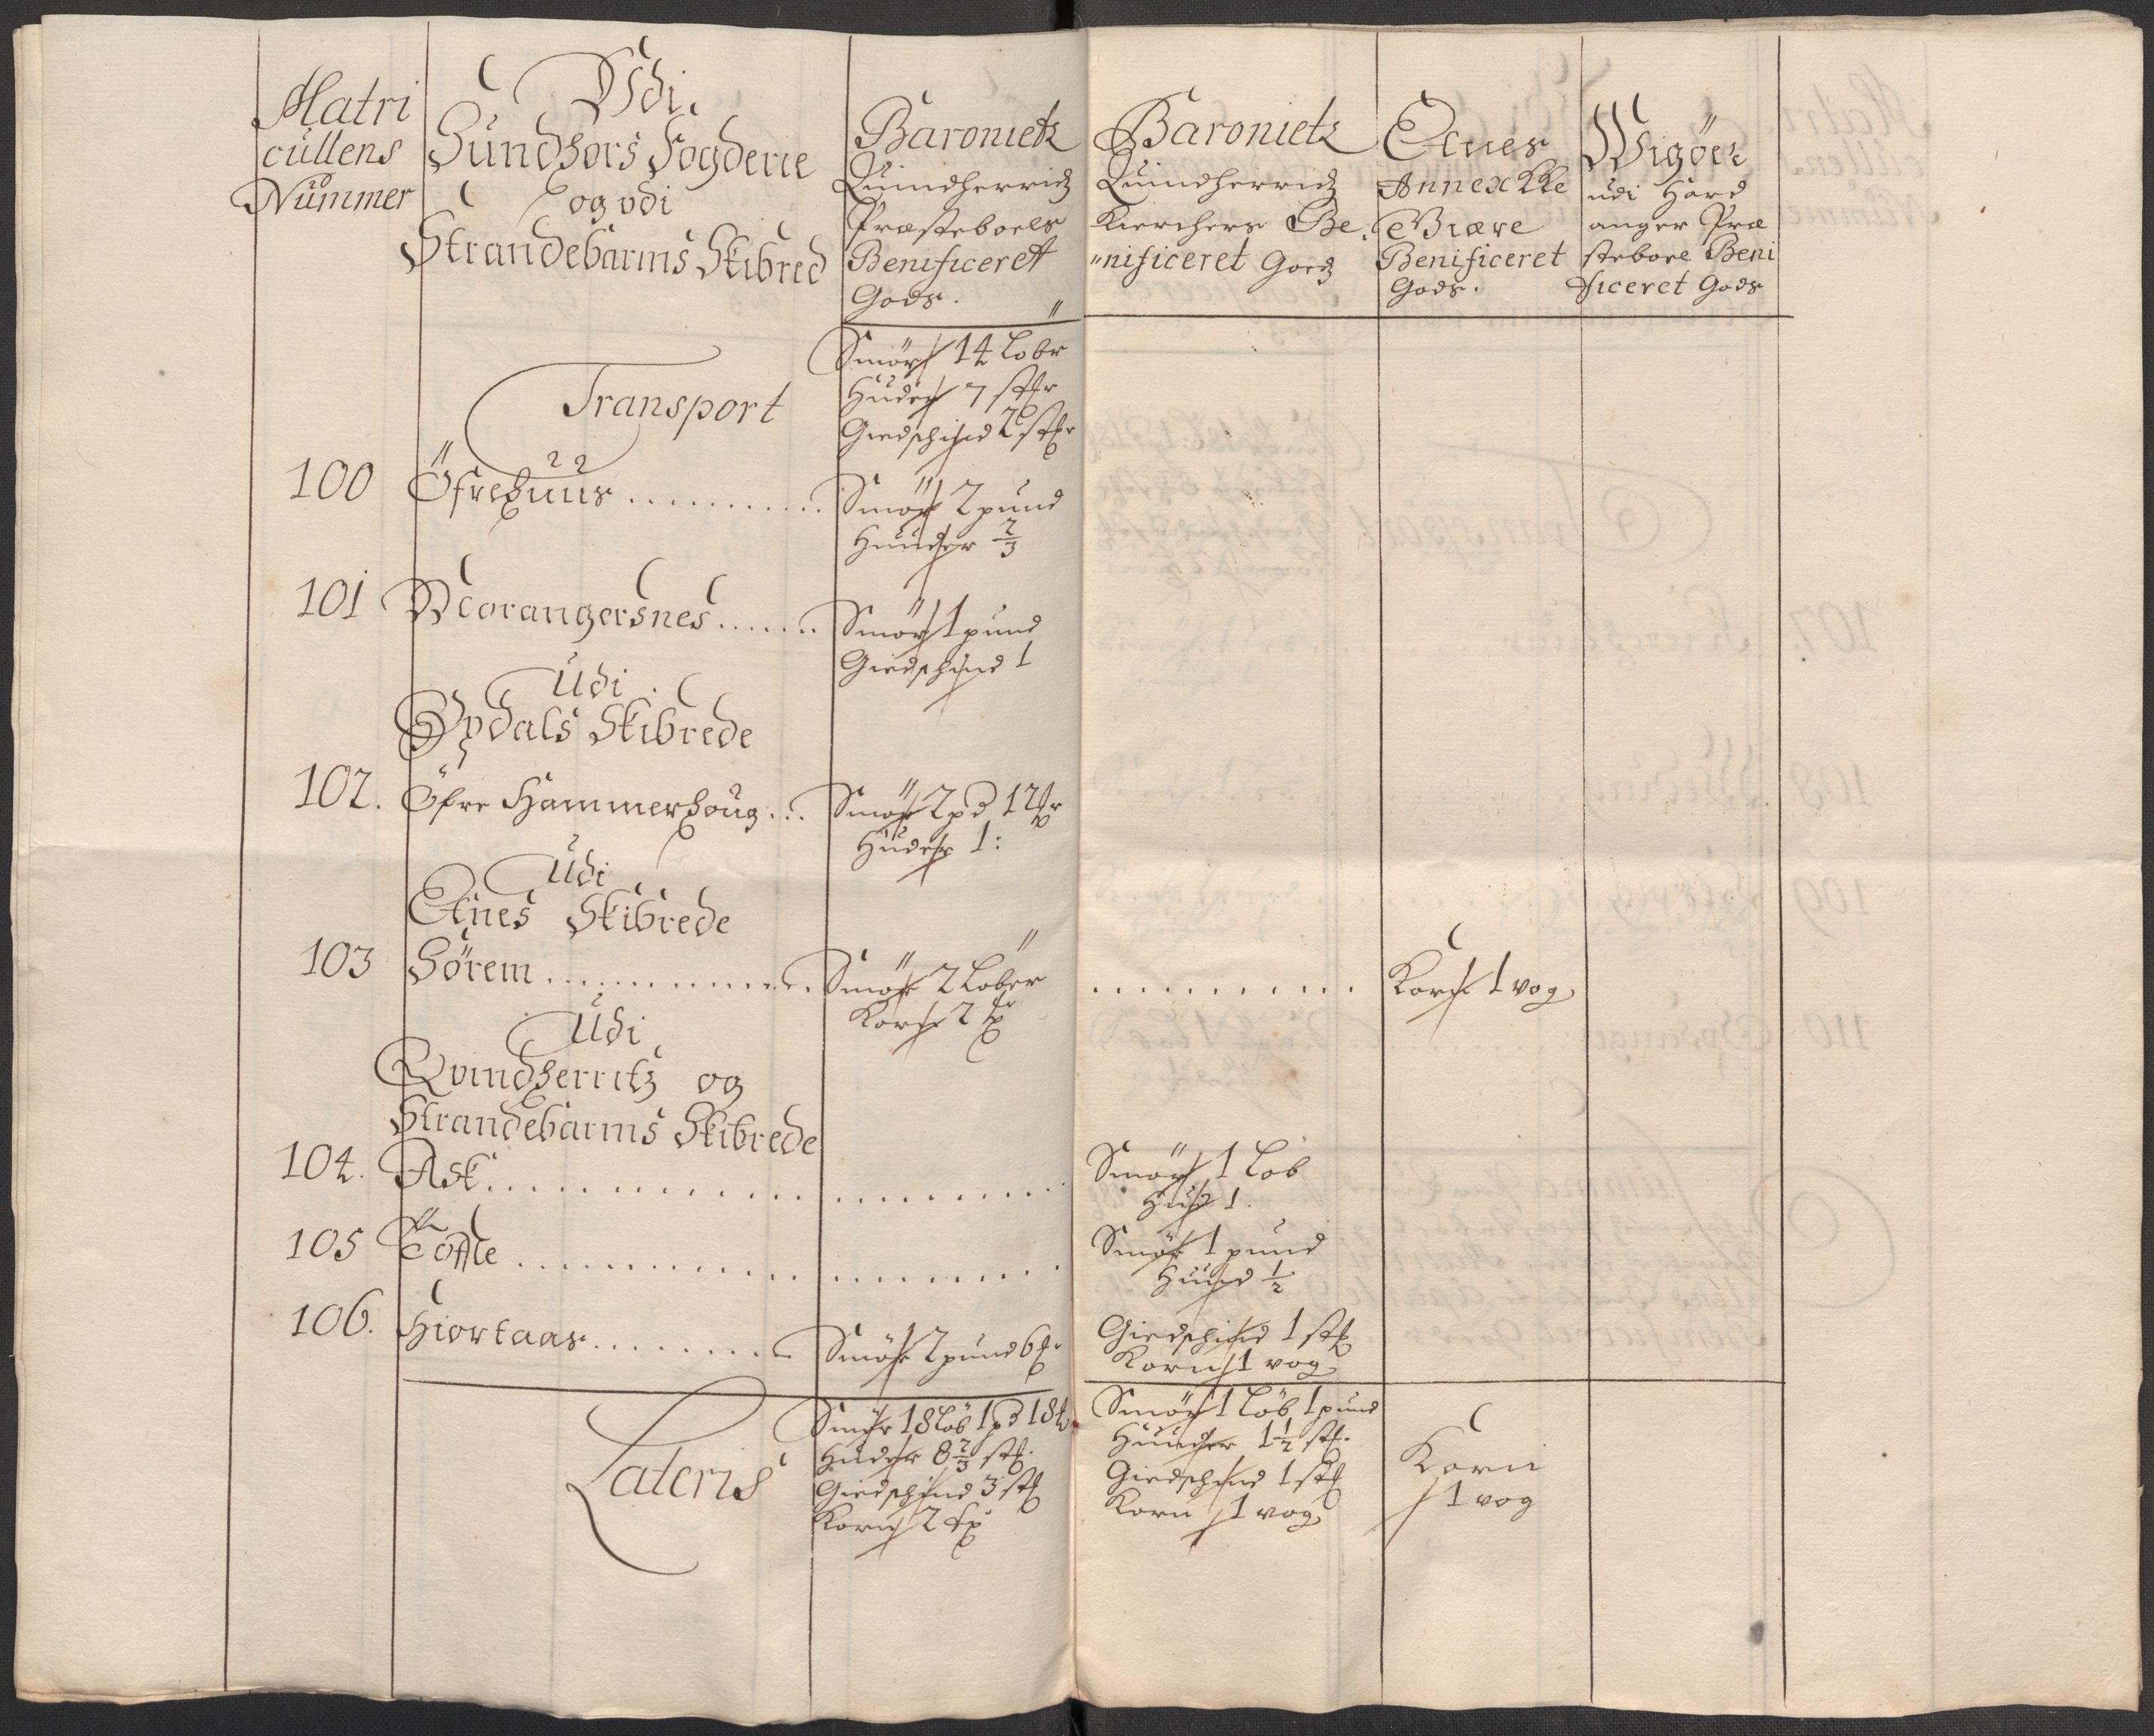 Matri
cüllens
Nümmer
Vdi
Sündhors Fogderie
og vdi
Strandebarms Skibred
Baronietz
Quindherridtz
Præsteboels
Benificeret
Gods.
Baronietz
Quindherridtz
Kierchers Be
nificeret Godz
Etnes
Annex Kke
Benificeret
Gods.
Wigöer
udi Hard
anger Præ
steboele Beni
ficeret Gods
Transport
Smör 14 Löbr
Huder 7 stkr
Giedschind 2 stkr
100 Öfrehuus
Smör 2 pund
Huuder 2/3
101 Morangersnes
Smör 1 pund
Giedschind 1
Udi
Opdals Skibrede
102. Öfre Hammerhoug
Smör 2 pd 12 mr
Huder 1:
Udi
Etnes Skibrede
103 Sörem
Smör 2 Löber
Korn 2
Korn 1 vog
Udi
Qvindherritz og
Strandebarms Skibrede
104. Ask
Smör 1 Löb
Hud 1.
105
Smör 1 pund
Huud 1/2
106. Hiortaas
Smör 2 pund 6
Giedschind 1 stk
Korn 1 vog
Lateris
Smör 18 Löb 1 pd 18
Huder 8 2/3 stk.
Giedschind 3 stk
Korn 2
Smör 1 Löb 1 pund
Huuder 1 1/2 stk.
Giedschind 1 stk
Korn 1 vog
Korn
1 vog